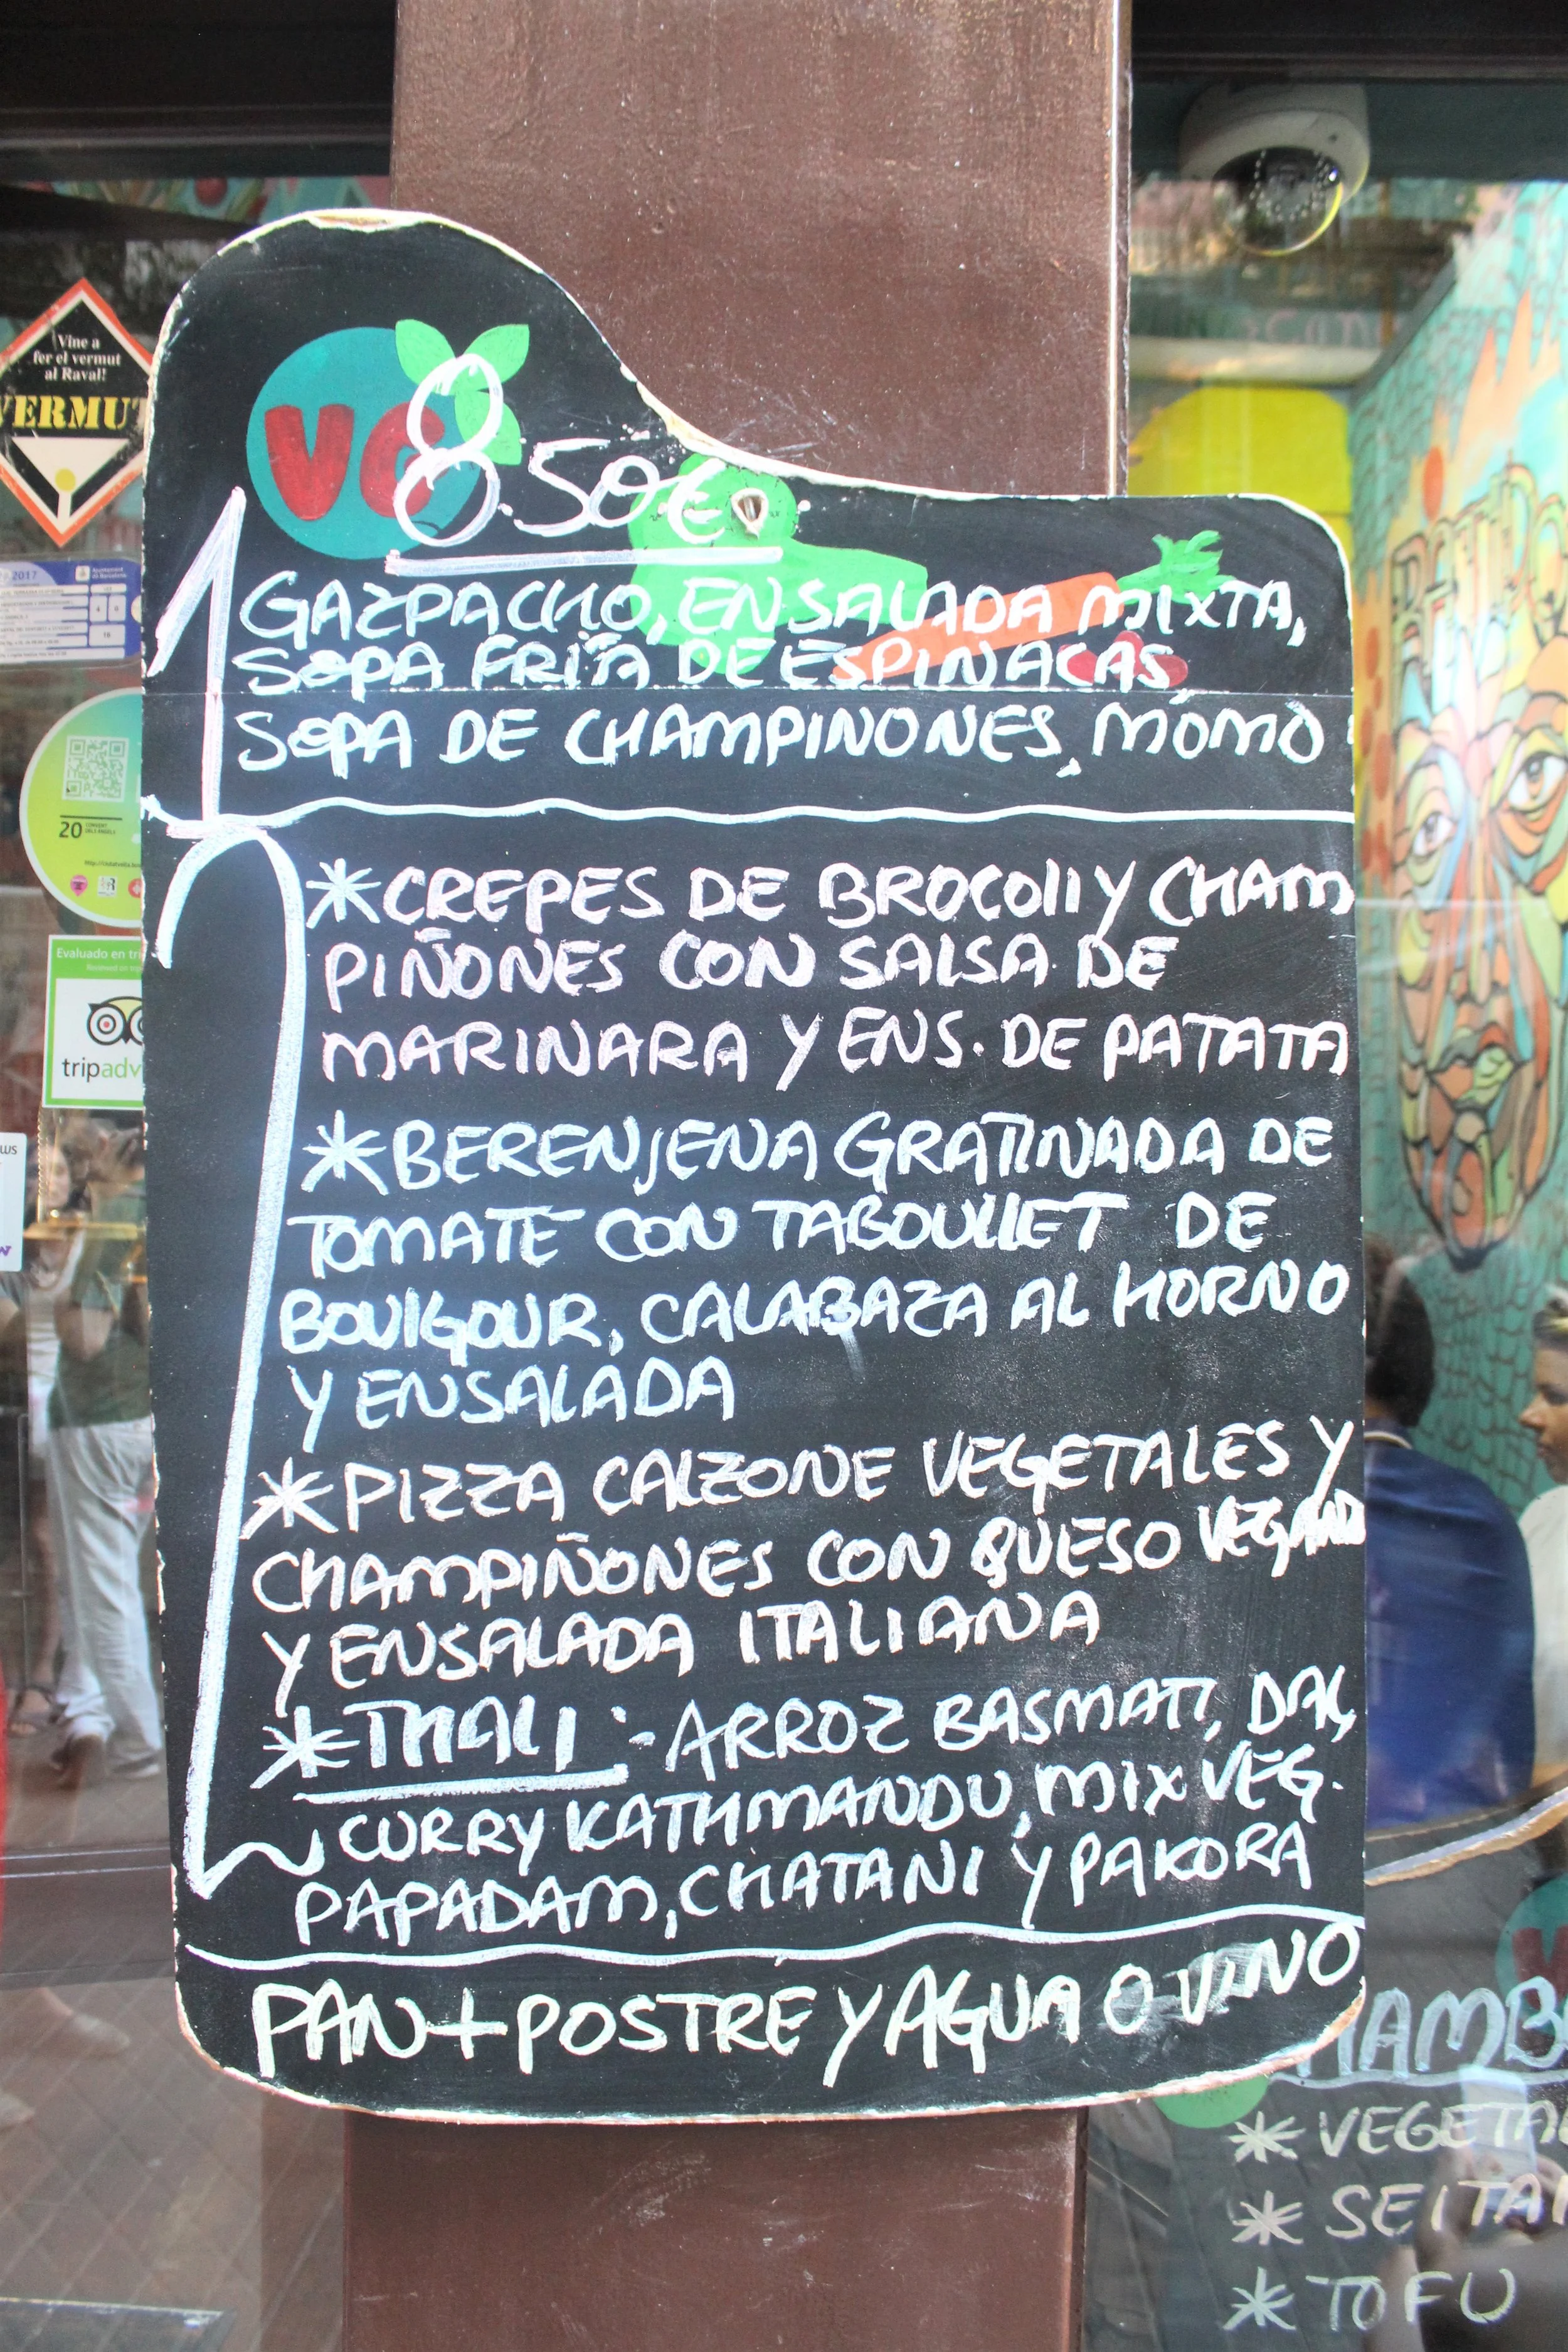 Vine a
fer el vermut
al Raval!
VERMUT
2017
20
Evaluado en
tripadv
VG
8.50€
1
GAZPACHO, ENSALADA MIXTA,
SOPA FRITA DE ESPINACAS,
SOPA DE CHAMPINONES, MOMO
*CREPES DE BROCOLI Y CHAM
PIÑONES CON SALSA DE
MARINARA Y ENS. DE PATATA
*BERENJENA GRATINADA DE
TOMATE CON TABOULLET DE
BOULGOUR, CALABAZA AL HORNO
Y ENSALADA
*PIZZA CALZONE VEGETALES Y
CHAMPIÑONES CON QUESO VEGANO
Y ENSALADA ITALIANA
*THALI :- ARROZ BASMATI, DAL,
CURRY KATHMANDU, MIX VEG.
PAPADAM, CHATANI Y PAKORA
PAN + POSTRE Y AGUA O VINO
HAMB
* VEGETA
* SEITA
* TOFU